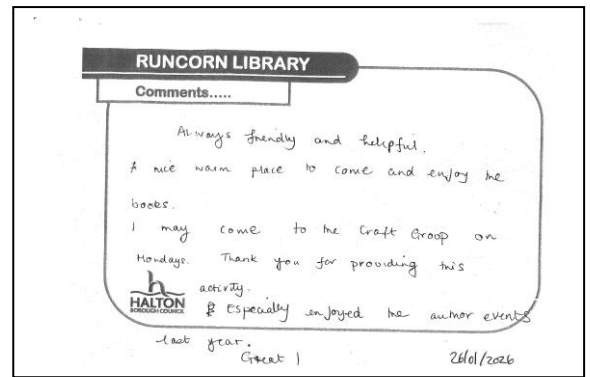 RUNCORN LIBRARY
Comments.....
Always friendly and helpful.
A nice warm place to come and enjoy the
books.
I may come to the Craft Groop on
Mondays. Thank you for providing this
activity.
HALTON
BOROUGH COUNCIL
Especially enjoyed the author events
last year.
Great !
26/01/2026